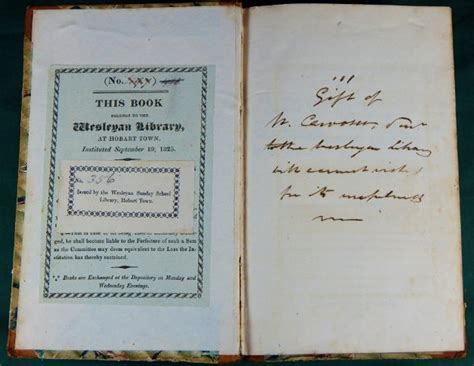 (No.
THIS BOOK
BELONGS TO THE
Wesleyan Library,
AT HOBART TOWN.
Instituted September 19, 1825.
No 356
Issued by the Wesleyan Sunday School
Library, Hobart Town.
ged, he shall become liable to the Forfeiture of such a Sum
as the Committee may deem equivalent to the Loss the In-
stitution has thereby sustained.
*,* Books are Exchanged at the Depository on Monday and
Wednesday Evenings.
Gift of
to the Wesleyan Library
with earnest
for its usefulness